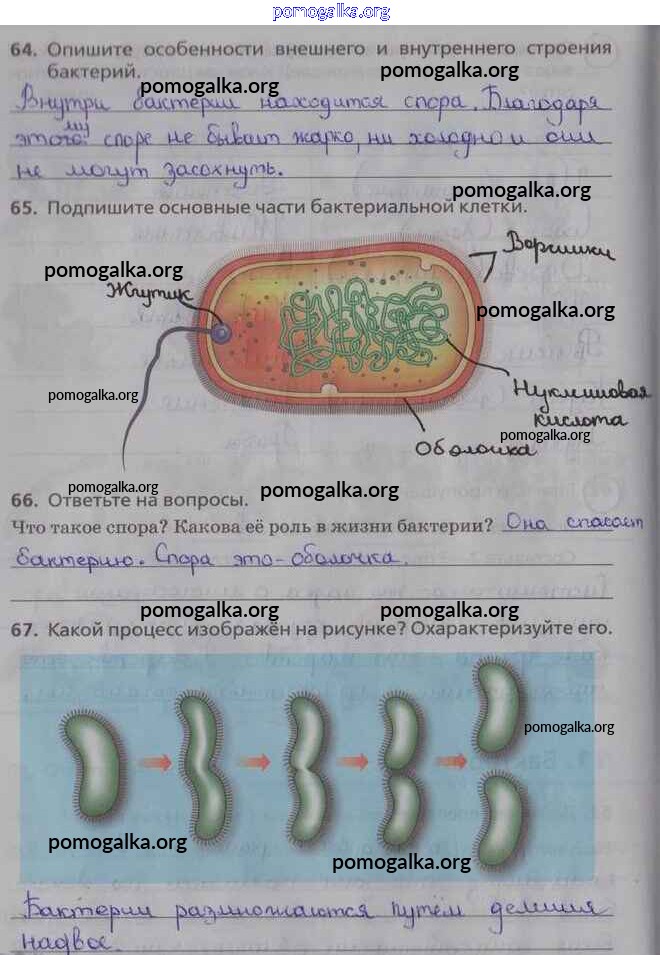 pomogalka.org
64. Опишите особенности внешнего и внутреннего строения
бактерий.
pomogalka.org
pomogalka.org
Внутри бактерии находится спора. Благодаря
этому споре не бывает жарко, ни холодно и они
не могут засохнуть.
pomogalka.org
65. Подпишите основные части бактериальной клетки.
Ворсинки
pomogalka.org
Жгутик
pomogalka.org
pomogalka.org
Нуклеиновая
кислота
pomogalka.org
Оболочка
pomogalka.org
pomogalka.org
66. Ответьте на вопросы.
Что такое спора? Какова её роль в жизни бактерии? Она спасает
бактерию. Спора это - оболочка.
pomogalka.org
pomogalka.org
67. Какой процесс изображён на рисунке? Охарактеризуйте его.
pomogalka.org
pomogalka.org
pomogalka.org
Бактерии размножаются путём деления
надвое.